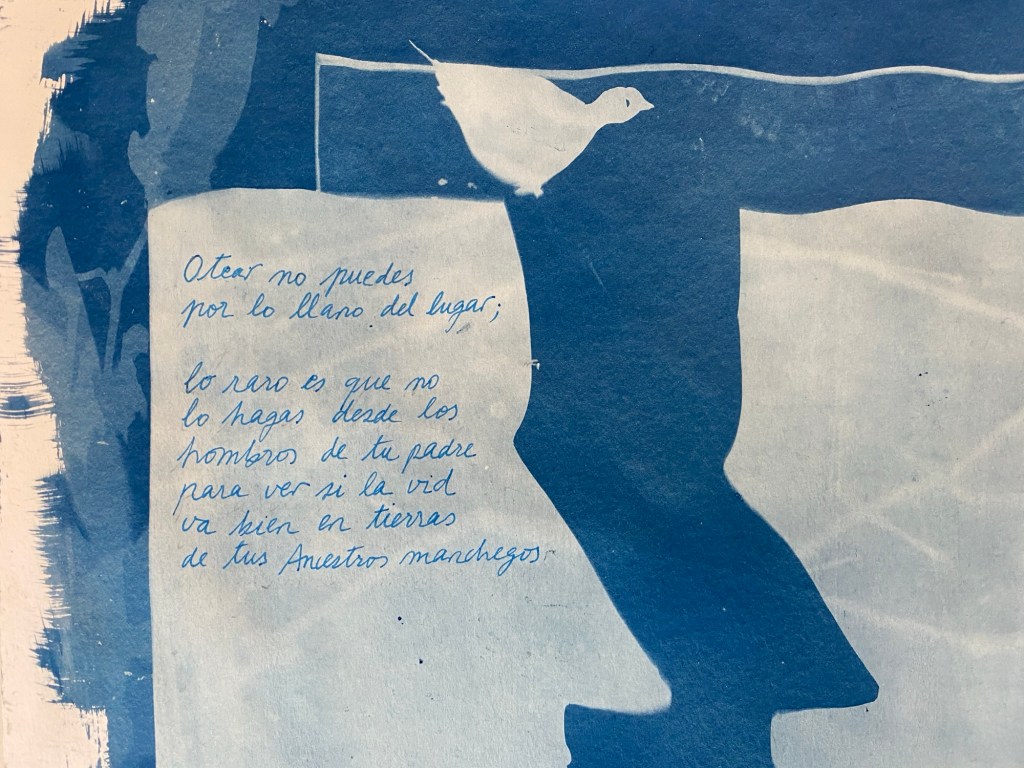 Otear no puedes
por lo llano del lugar;
lo raro es que no
lo hagas desde los
hombros de tu padre
para ver si la vid
va bien en tierras
de tus Ancestros manchegos.